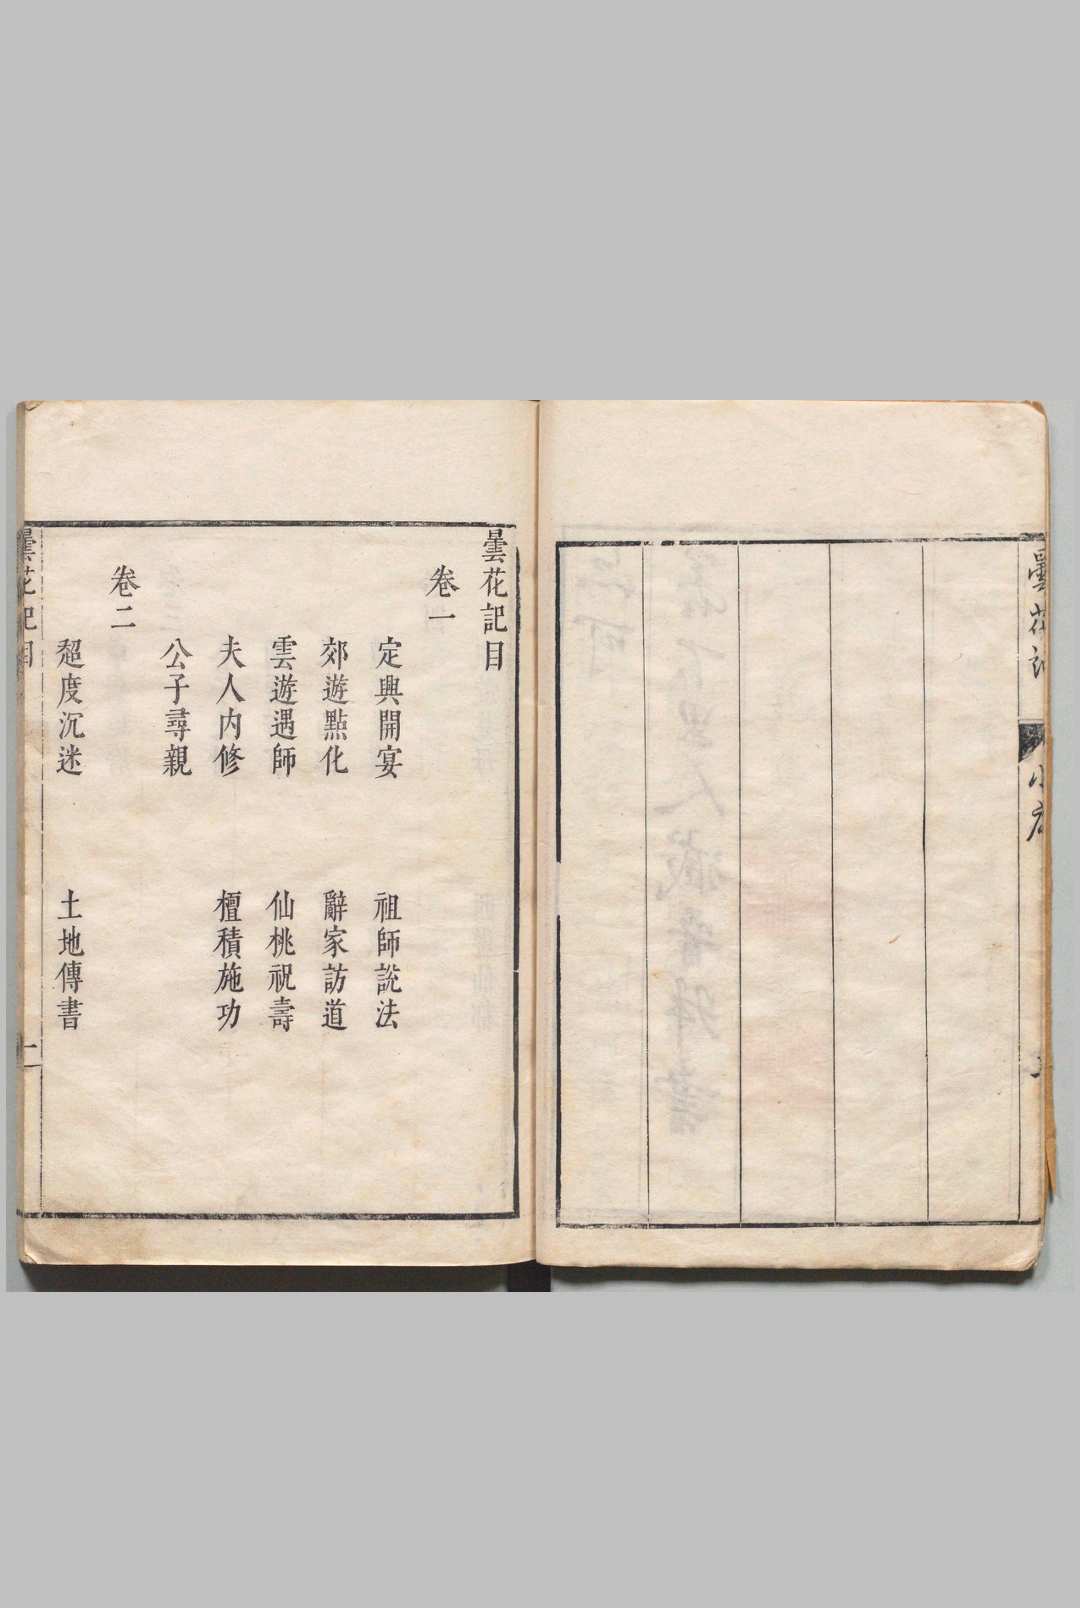 曇花記
小序
曇花記目
卷一
定興開宴　祖師說法
郊遊點化　辭家訪道
雲遊遇師　仙桃祝壽
夫人內修　檀積施功
公子尋親
卷二
超度沉迷　土地傳書
曇花記目
一